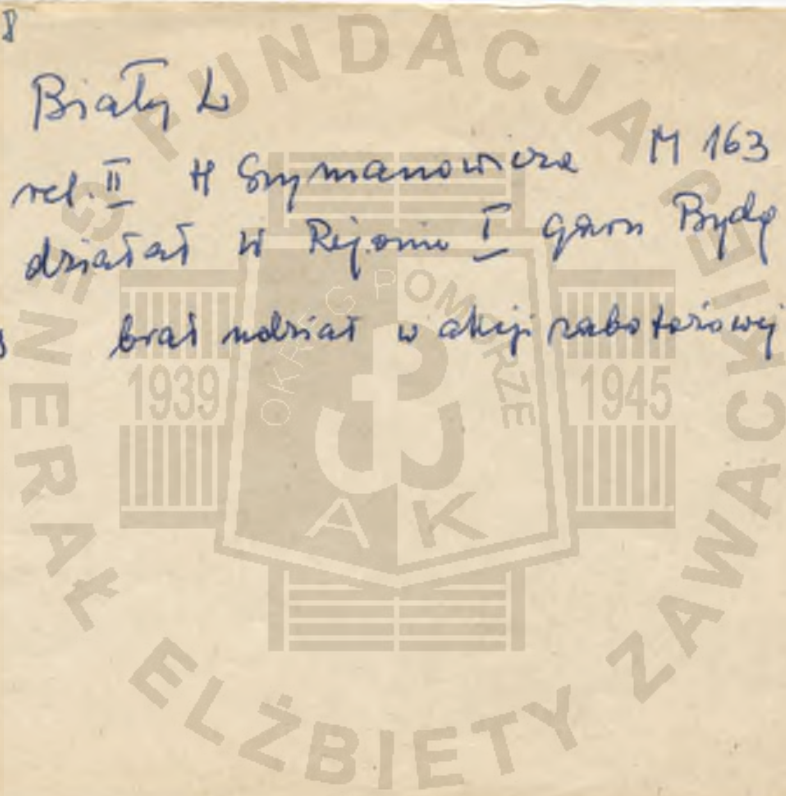 8
Biały L
rel. II H Szymanowicza M 163
działał w Rejonie I garn Bydg
brał udział w akcji sabotażowej
FUNDACJA GENERAŁ ELŻBIETY ZAWACKIEJ
OKRĘG POMORZE
1939 1945
A K